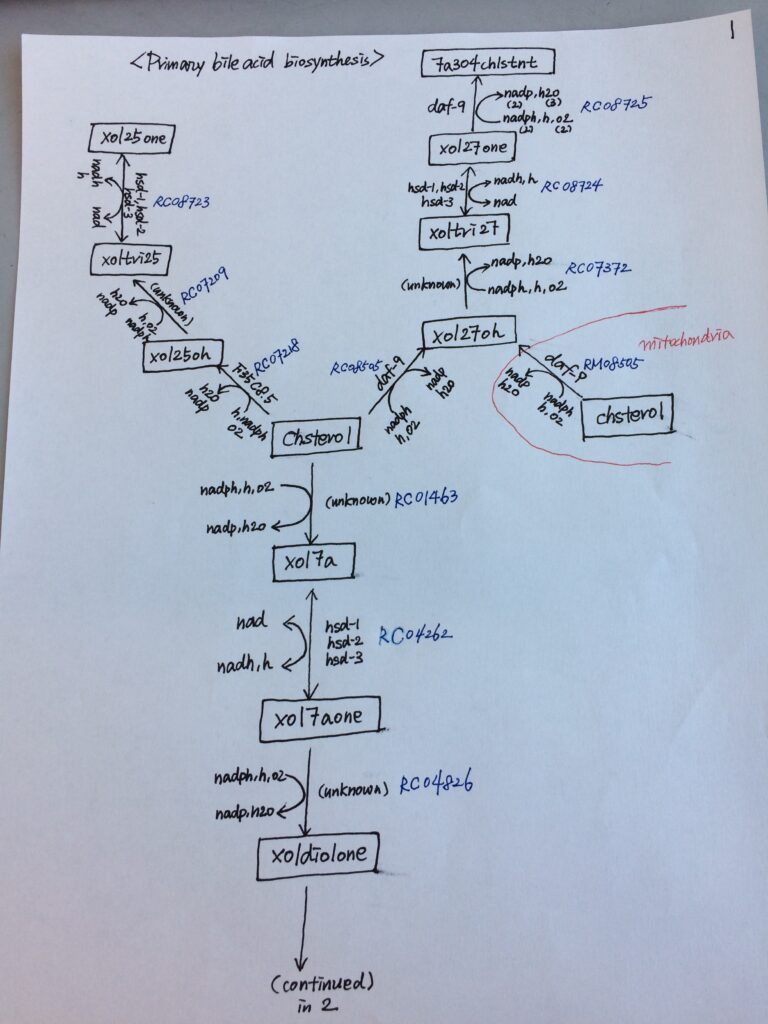 1
<Primary bile acid biosynthesis>
7a304chlstnt
daf-9
nadp, h2o
(2) (3)
nadph, h, o2
(2) (2)
RC08725
xol25one
xol27one
nadh
h
nad
hsd-1, hsd-2
hsd-3
RC08723
hsd-1, hsd-2
hsd-3
nadh, h
nad
RC08724
xoltri25
xoltri27
h2o
nadp
(unknown)
h, o2
nadph
RC07209
(unknown)
nadp, h2o
nadph, h, o2
RC07372
xol25oh
xol27oh
mitochondria
F35C8.5
RC07218
h2o
nadp
h, nadph
o2
RC08505
daf-9
nadp
h2o
nadph
h, o2
RM08505
nadp
h2o
nadph
h, o2
chsterol
Chsterol
nadph, h, o2
nadp, h2o
(unknown)
RC01463
xol7a
nad
nadh, h
hsd-1
hsd-2
hsd-3
RC04262
xol7aone
nadph, h, o2
nadp, h2o
(unknown)
RC04826
xoldiolone
(continued)
in 2